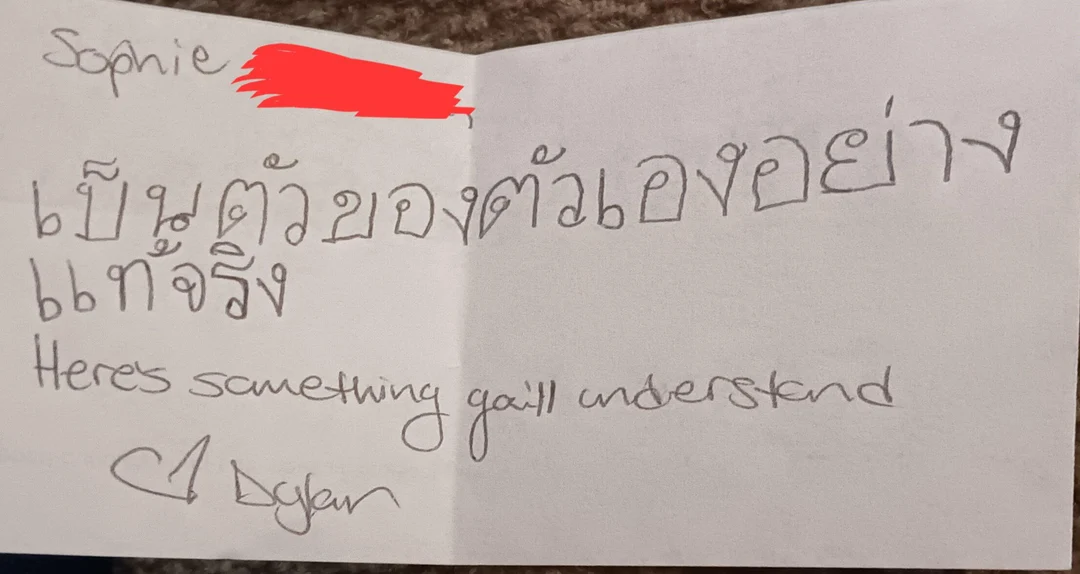 Sophie
เป็นตัวของตัวเองอย่าง
แท้จริง
Here's something ya'll understand
Dylan